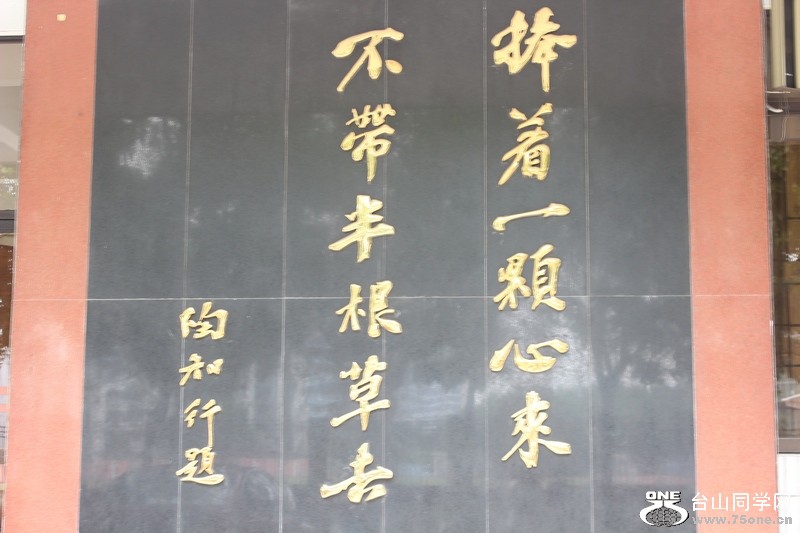 捧着一顆心來
不帶半根草去
陶知行題
ONE 台山同学网
www.75one.cn